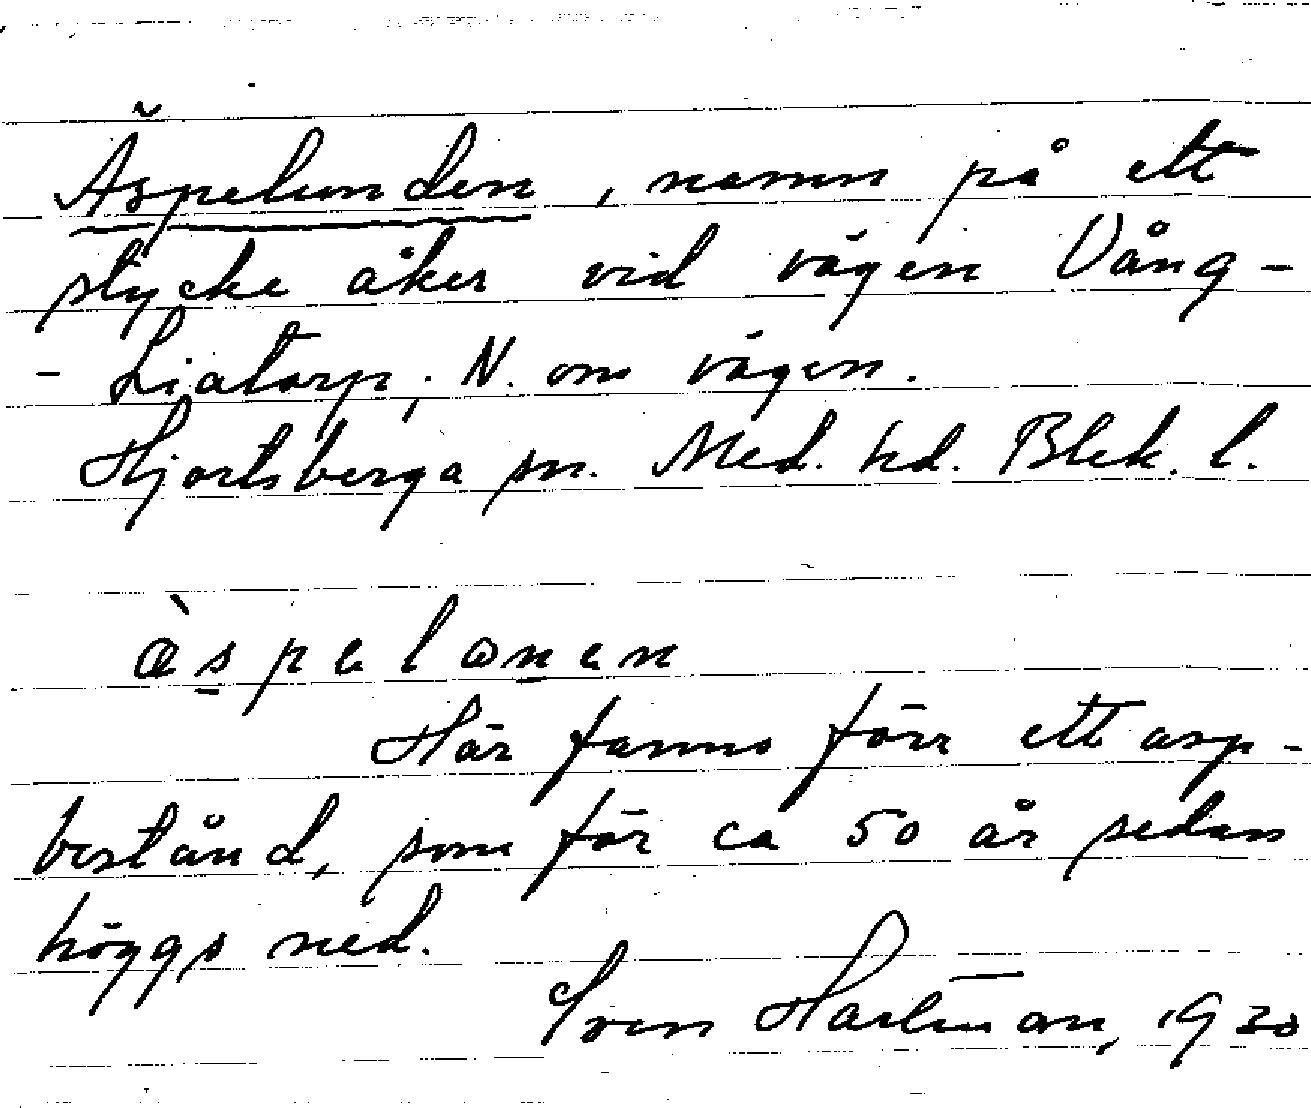 Äspelunden, namn på ett
stycke åker vid vägen Vång-
- Liatorp, N. om vägen.
Hjortsberga sn. Med. hd. Blek. l.
æ̀spelωnen
Här fanns förr ett asp-
bestånd, som för ca 50 år sedan
höggs ned.
Sven Hartman, 1930